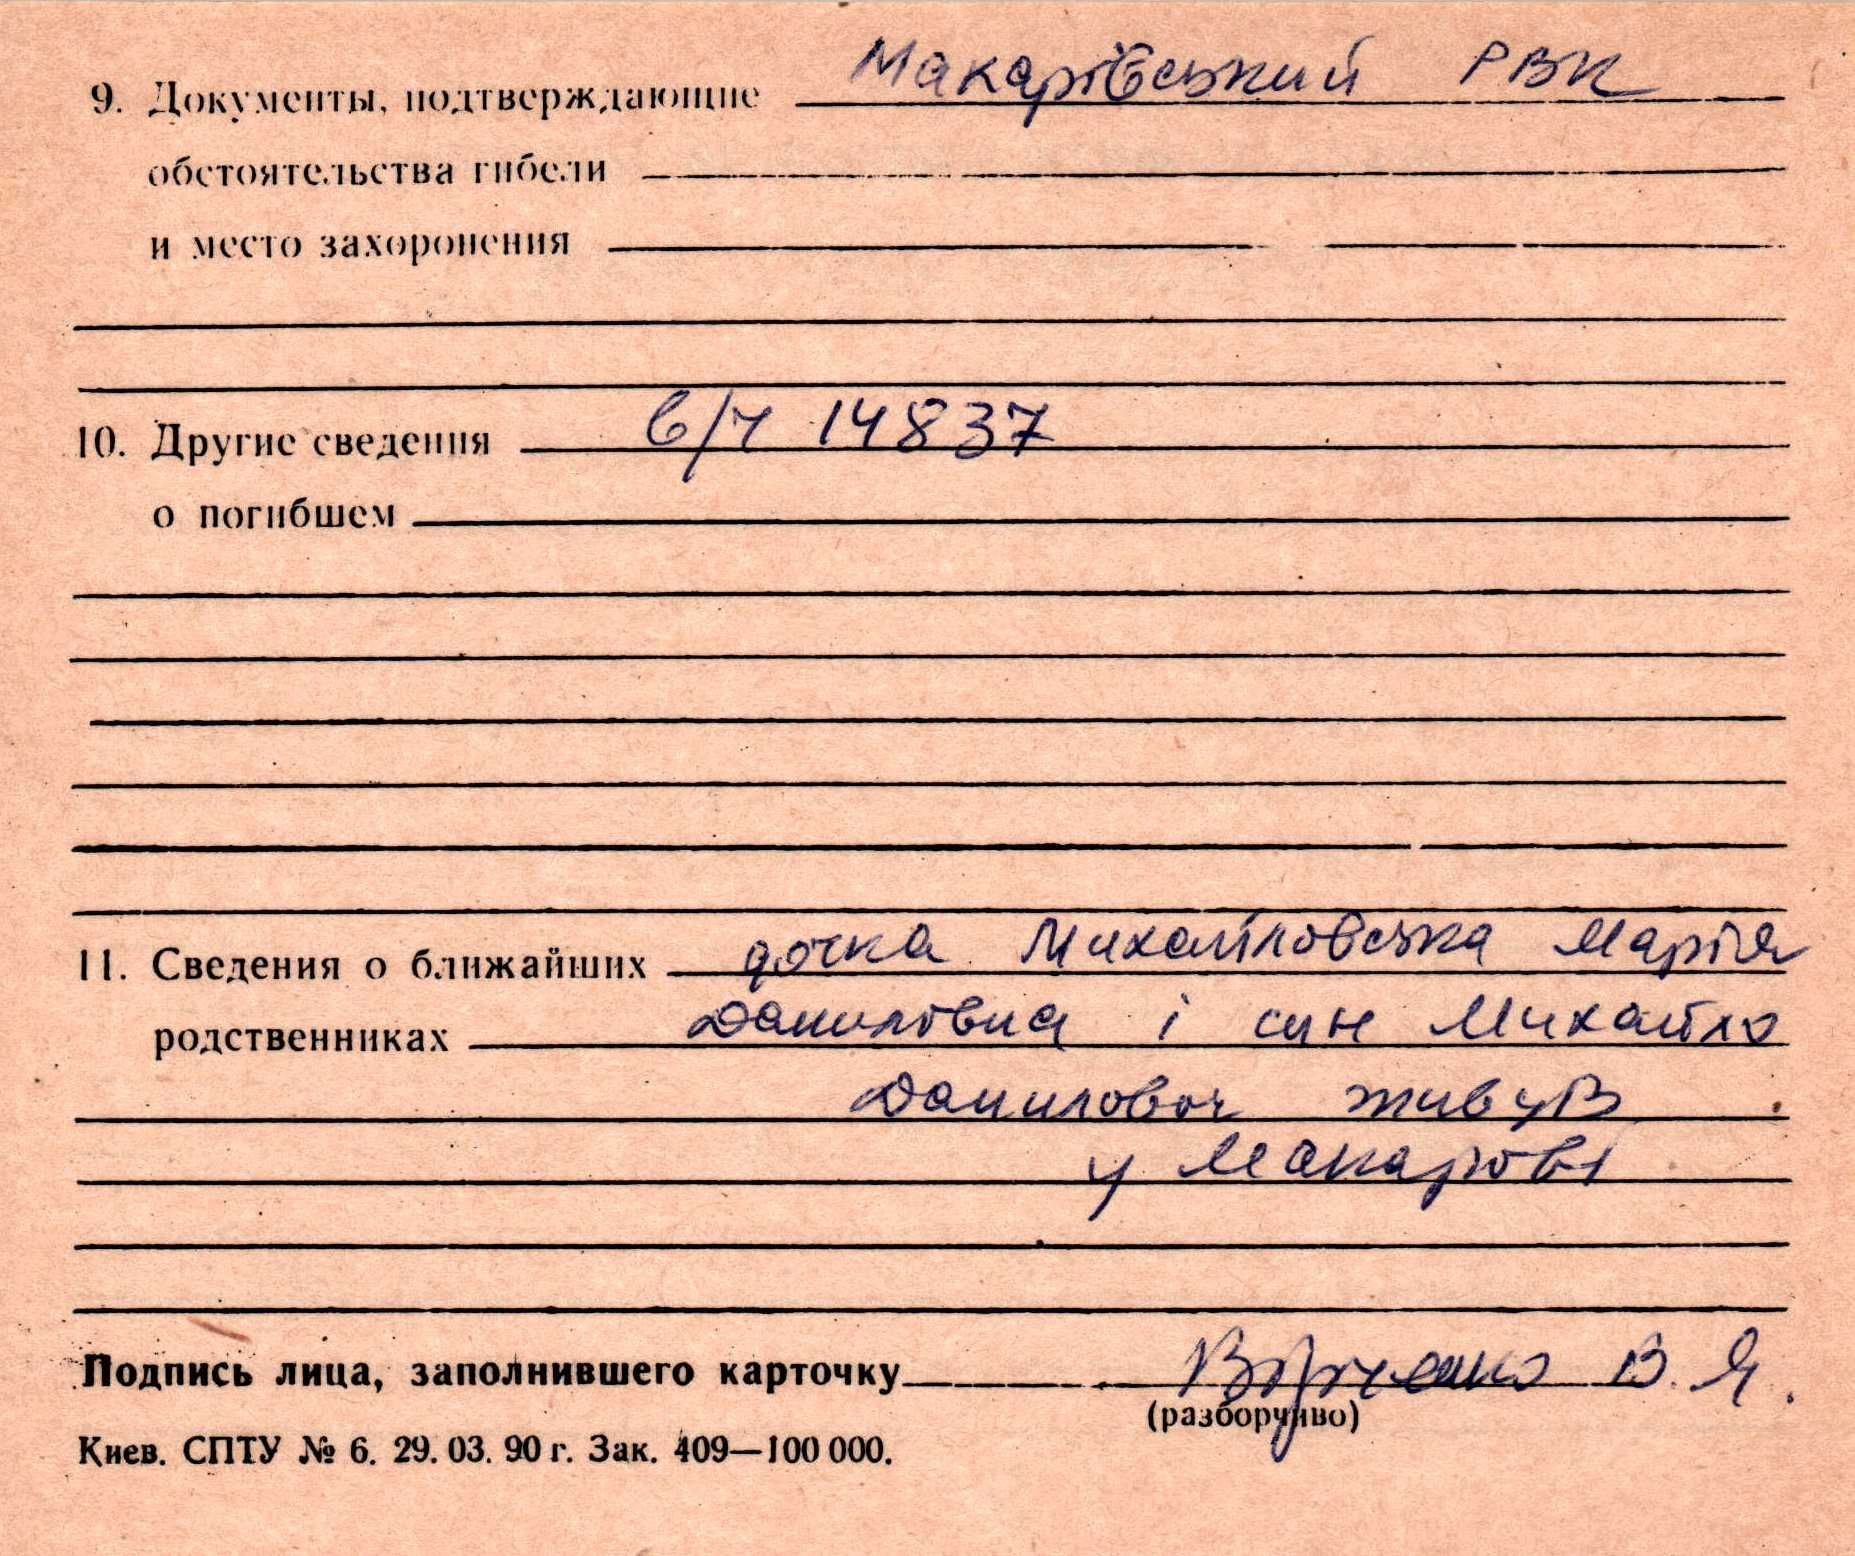 9. Документы, подтверждающие Макарівський РВК
обстоятельства гибели
и место захоронения
10. Другие сведения в/ч 14837
о погибшем
11. Сведения о ближайших дочка Михайловська Марія
родственниках Даниловна і син Михайло
Данилович живув
у Макарові
Подпись лица, заполнившего карточку В. Я.
(разборчиво)
Киев. СПТУ № 6. 29. 03. 90 г. Зак. 409—100 000.